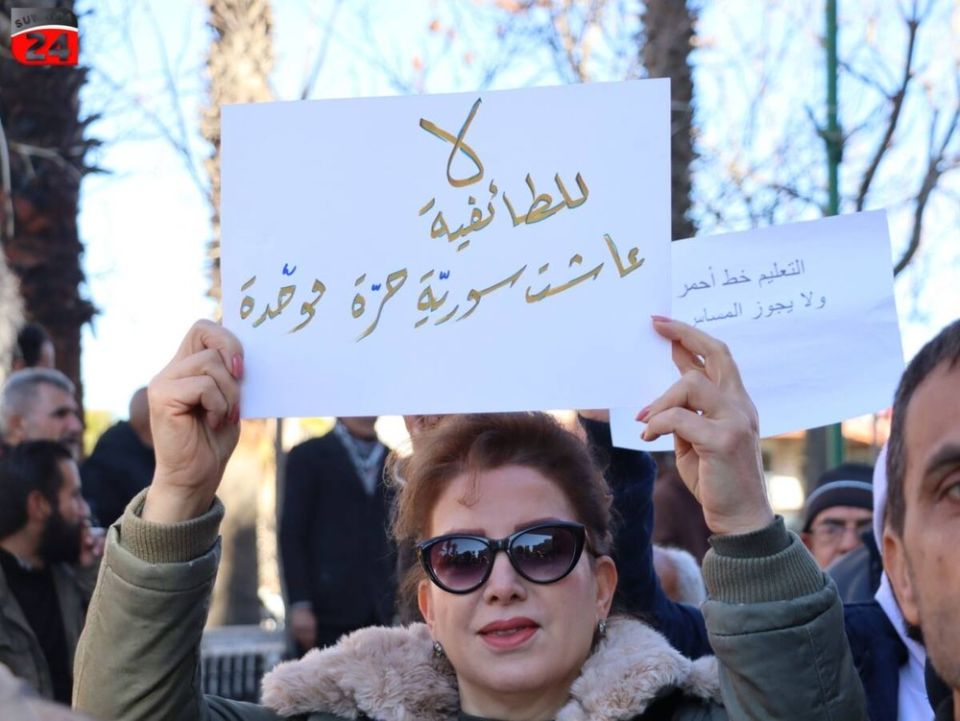 24
لا
للطائفية
عاشت سوريّة حرّة موحّدة
التعليم خط أحمر
ولا يجوز المساس